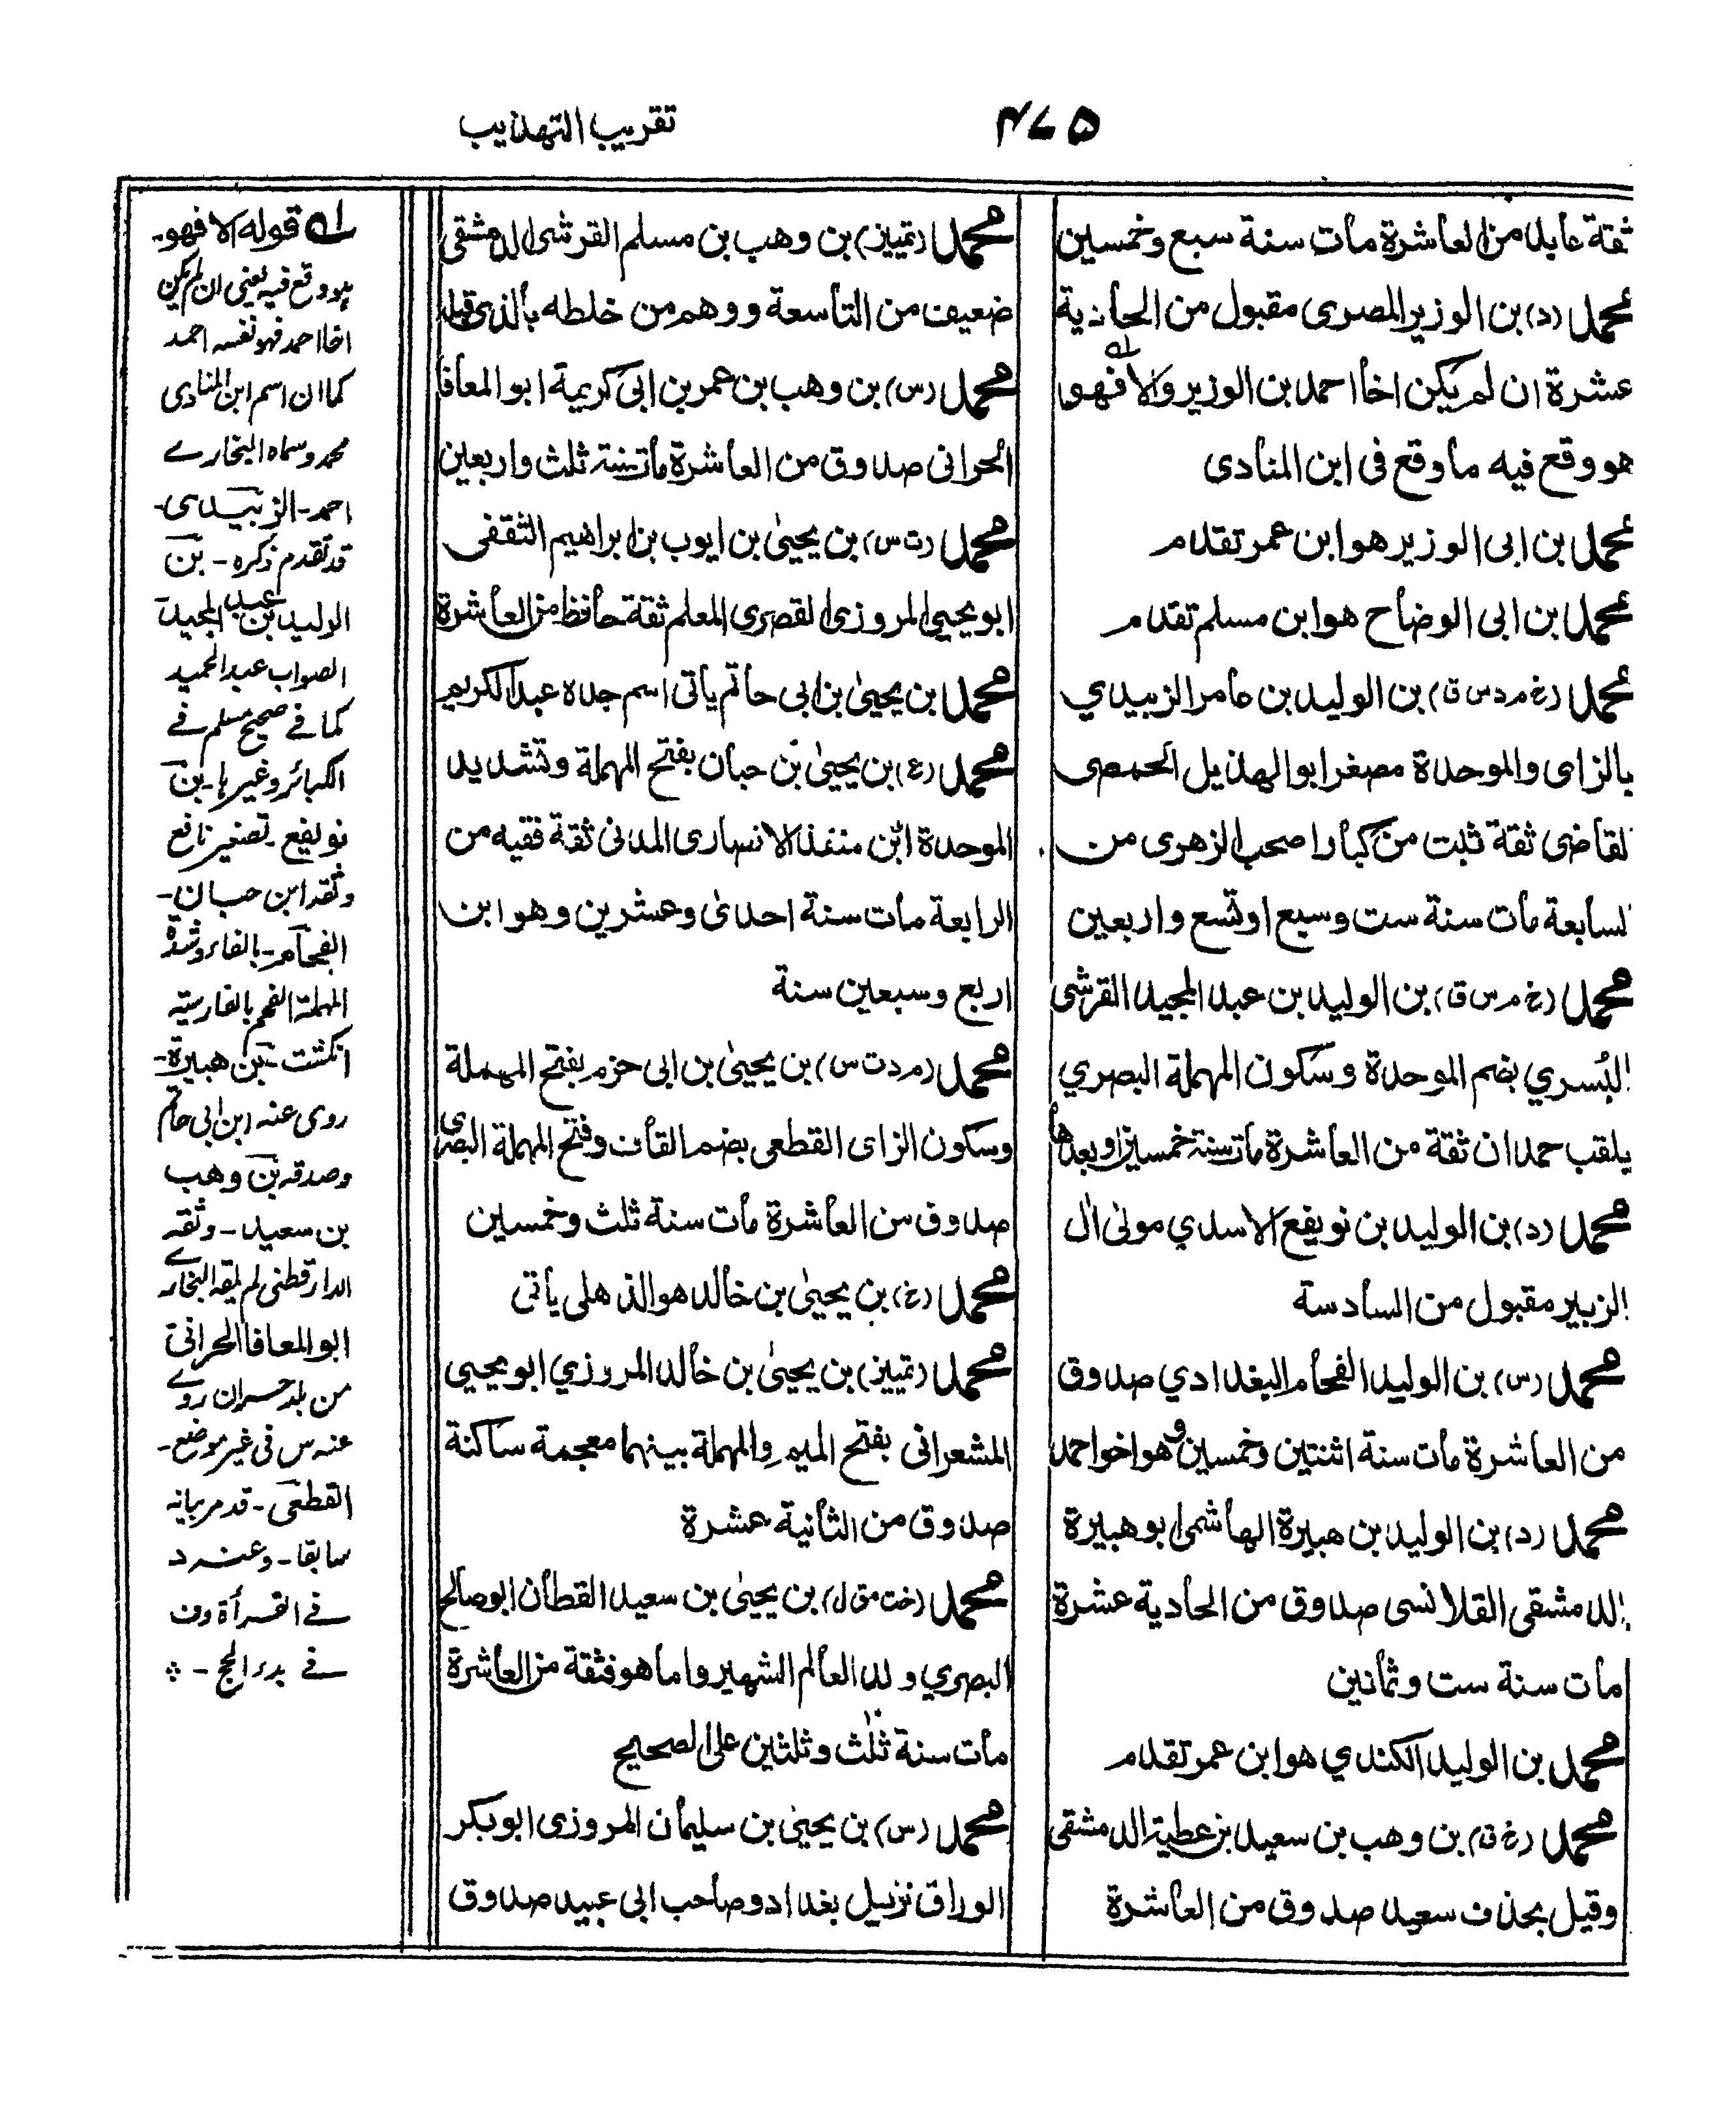 ۴۷۵
تقريب التهذيب
ثقة عابد من العاشرة مات سنة سبع وخمسين
محمد (د) بن الوزير المصرى مقبول من الحادية
عشرة ان لم يكن اخا احمد بن الوزير والا فهوله
هو وقع فيه ما وقع فى ابن المنادى
محمد بن ابى الوزير هو ابن عمر تقدم
محمد بن ابى الوضاح هو ابن مسلم تقدم
محمد (خ م د س ق) بن الوليد بن عامر الزبيدي
بالزاى والموحدة مصغر ابو الهذيل الحمصى
لقاضى ثقة ثبت من كبار اصحب الزهرى من
لسابعة مات سنة ست وسبع او تسع واربعين
محمد (خ م س ق) بن الوليد بن عبد المجيد القرشى
البُسري بضم الموحدة وسكون المهملة البصري
يلقب حمدان ثقة من العاشرة مات سنة خمسين او بعدها
محمد (د) بن الوليد بن نويفع الاسدي مولى ال
الزبير مقبول من السادسة
محمد (س) بن الوليد الفحام البغدادي صدوق
من العاشرة مات سنة اثنتين وخمسين وهو اخو احمد
محمد (د) بن الوليد بن هبيرة الهاشمى ابو هبيرة
الدمشقى القلانسى صدوق من الحادية عشرة
مات سنة ست وثمانين
محمد بن الوليد الكندي هو ابن عمر تقدم
محمد (خ ق) بن وهب بن سعيد بن عطية الدمشقى
وقيل بحذف سعيد صدوق من العاشرة
محمد (تمييز) بن وهب بن مسلم القرشى الدمشقى
ضعيف من التاسعة ووهم من خلطه بالذى قبله
محمد (س) بن وهب بن عمر بن ابى كريمة ابو المعافا
الحرانى صدوق من العاشرة مات سنة ثلث واربعين
محمد (ت س) بن يحيىٰ بن ايوب بن ابراهيم الثقفى
ابو يحيى المروزى القصرى المعلم ثقة حافظ من العاشرة
محمد بن يحيىٰ بن ابى حاتم ياتى اسم جده عبد الكريم
محمد (ع) بن يحيىٰ بن حبان بفتح المهملة وتشديد
الموحدة ابن منقذ الانصارى المدنى ثقة فقيه من
الرابعة مات سنة احدىٰ وعشرين وهو ابن
اربع وسبعين سنة
محمد (م د ت س) بن يحيىٰ بن ابى حزم بفتح المهملة
وسكون الزاى القطعى بضم القاف وفتح المهملة البصرى
صدوق من العاشرة مات سنة ثلث وخمسين
محمد (خ) بن يحيىٰ بن خالد هو الذهلى ياتى
محمد (تمييز) بن يحيىٰ بن خالد المروزي ابو يحيى
المشعرانى بفتح الميم والمهملة بينهما معجمة ساكنة
صدوق من الثانية عشرة
محمد (خت مق ل) بن يحيىٰ بن سعيد القطان ابو صالح
البصري ولد العالم الشهير واما هو فثقة من العاشرة
مات سنة ثلٰث وثلثين على الصحيح
محمد (س) بن يحيىٰ بن سليمان المروزى ابو بكر
الوراق نزيل بغداد وصاحب ابى عبيد صدوق
له قوله الا فهو-
هو وقع فيه يعنى ان لم يكن
اخا احمد فهو نفسه احمد
كما ان اسم ابن المنادى
محمد وسماه البخارے
احمد- الزبيدى-
قد تقدم ذكره- بن
الوليد بن عبد المجيد
الصواب عبد الحميد
كما فے صحيح مسلم فے
الكبائر وغيرها- بن
نويفع- تصغير نافع
وثقه ابن حبان-
الفحام- بالفاء وشدة
المهملة الفحم بالفارسية
انگشت- بن هبيرة-
روى عنه ابن ابى حاتم
وصدقه بن وهب
بن سعيد- وثقه
الدارقطنى لم يلقه البخارے
ابو المعافا الحرانى
من بلد حران روے
عنه س فى غير موضع-
القطعى- قد مر بيانه
سابقا- وعنه د
فے القرأة وف
فے بدء الحج-